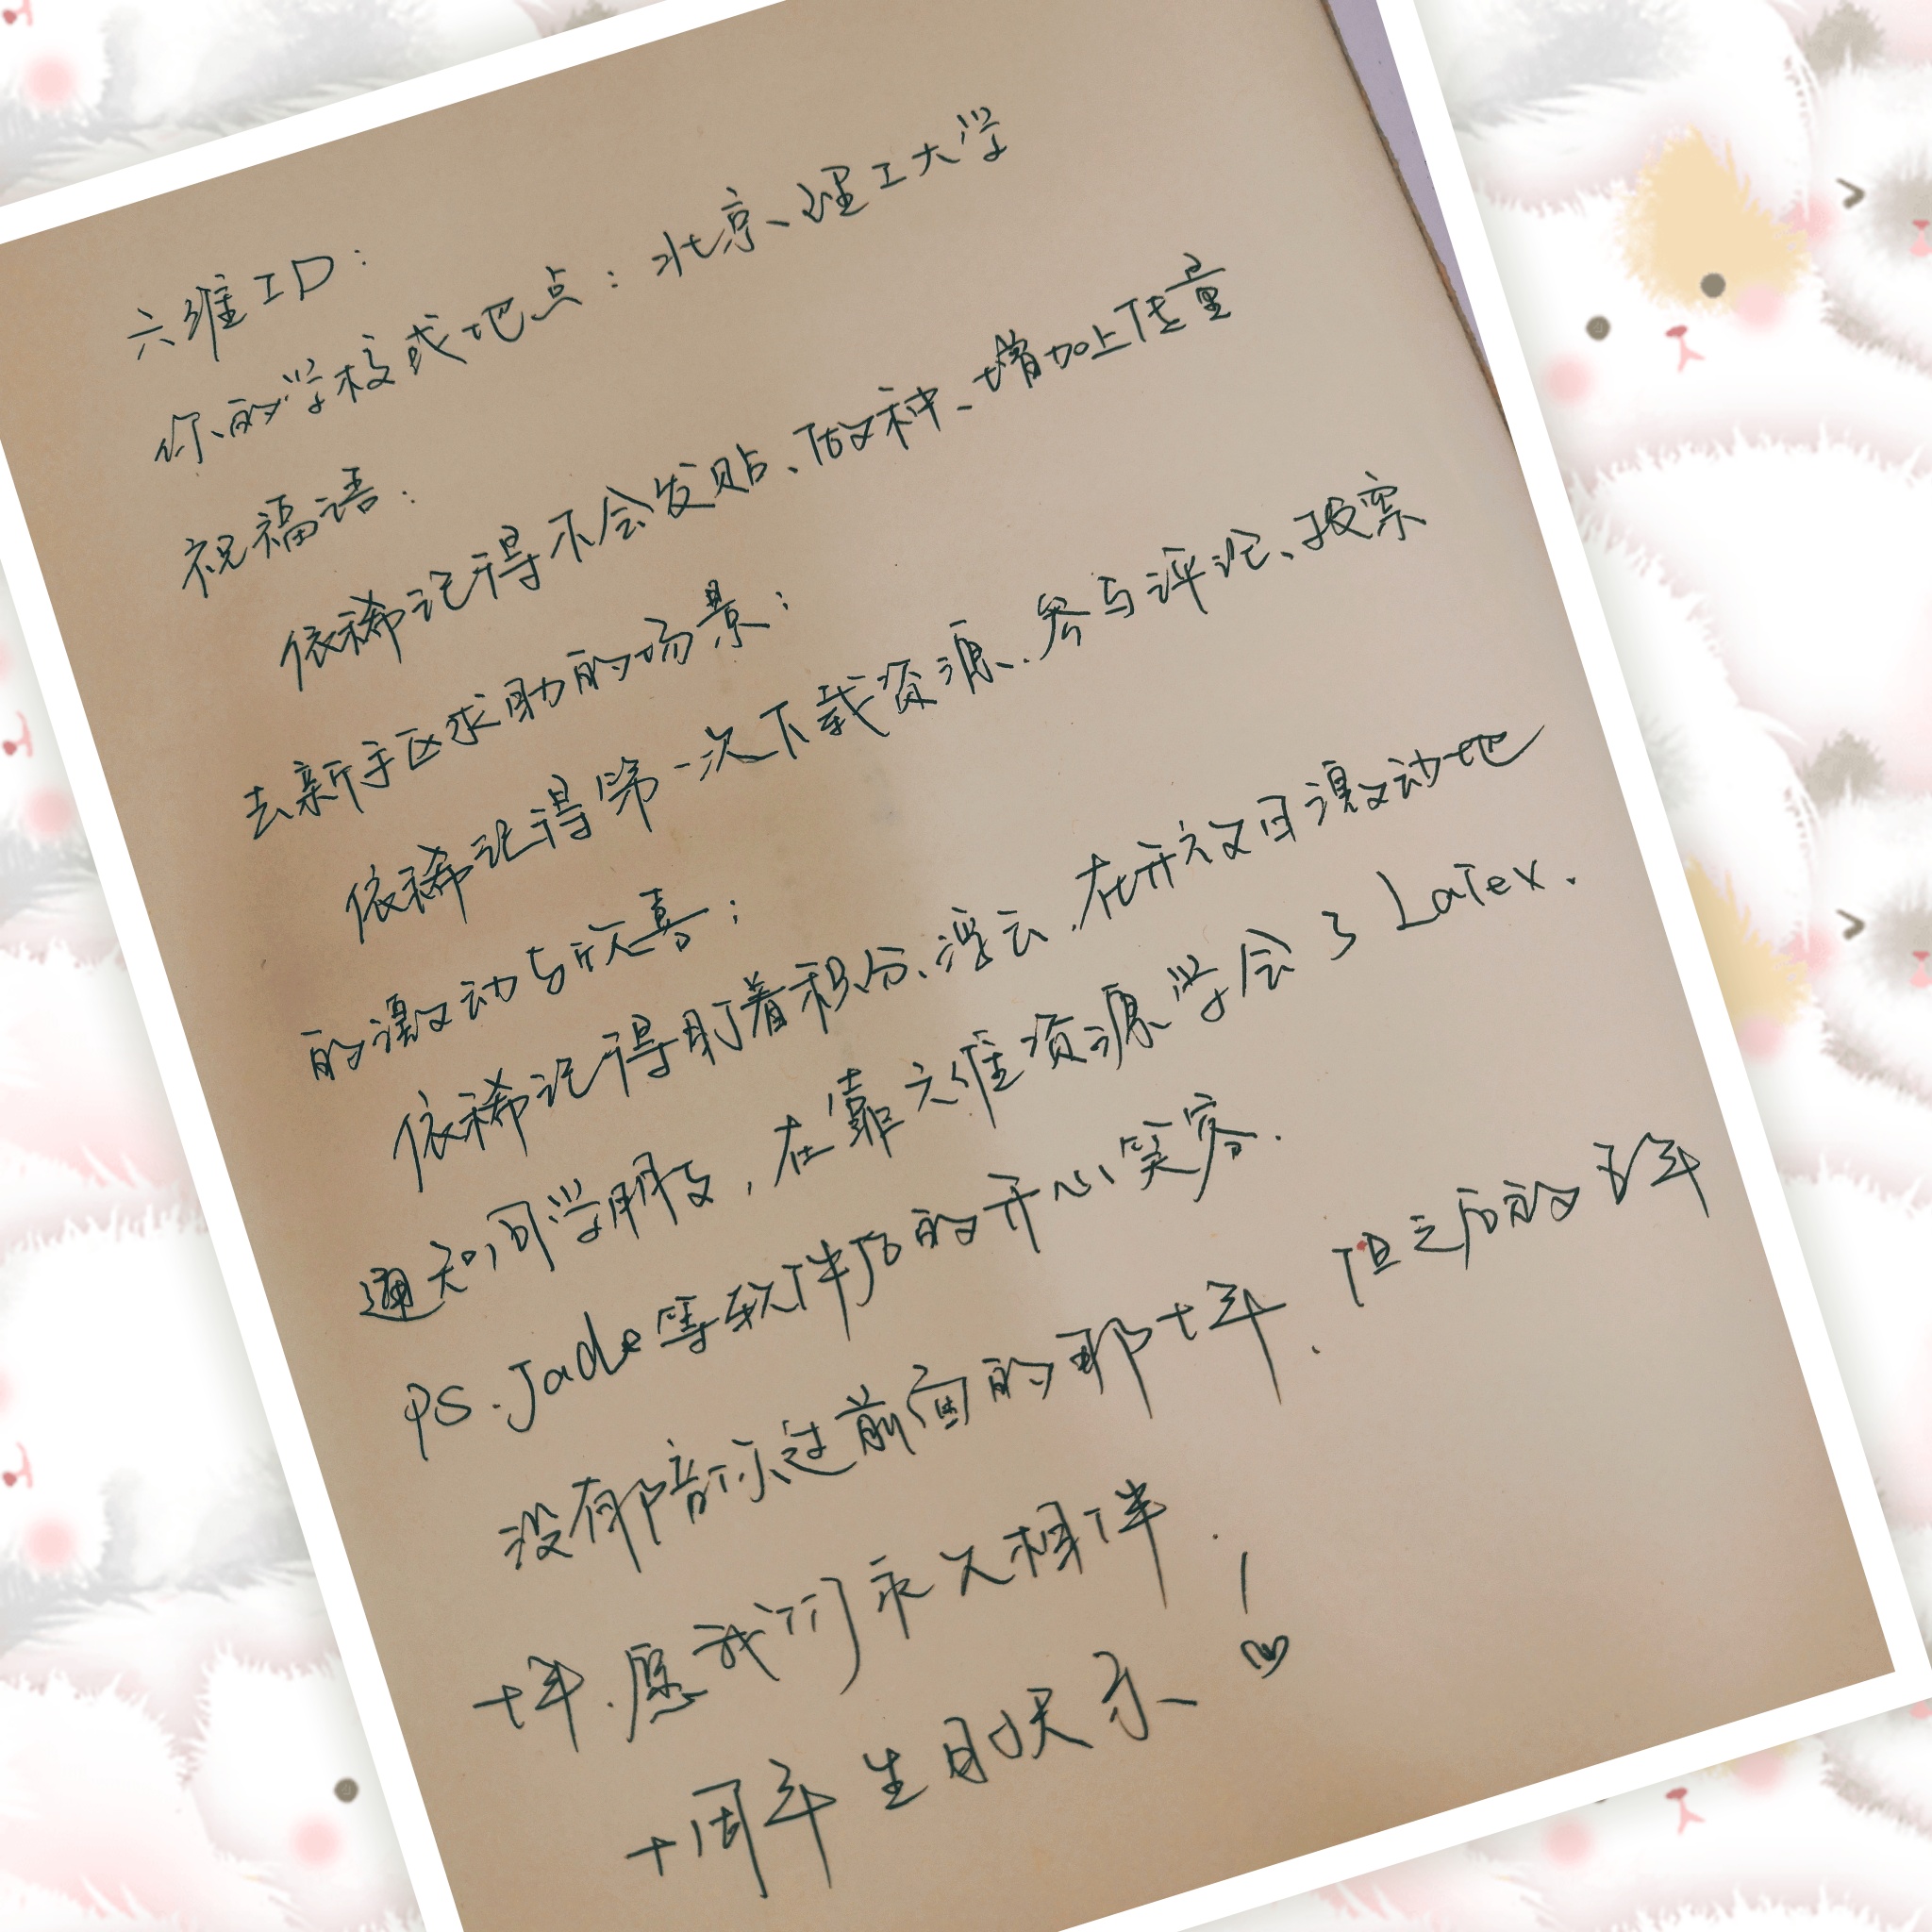 六维ID：
你的学校或地点：北京、理工大学
祝福语：
依稀记得不会发贴、做种、增加上传量
去新手区求助的场景；
依稀记得第一次下载资源、参与评论、投票
的激动与欣喜；
依稀记得盯着积分、浮云，在开放日激动地
通知同学朋友，在靠六维资源学会了LaTex、
PS、Jade等软件后的开心笑容.
没有陪你过前面的那十年，但之后的
十年，愿我们永久相伴.
十周年生日快乐！♡